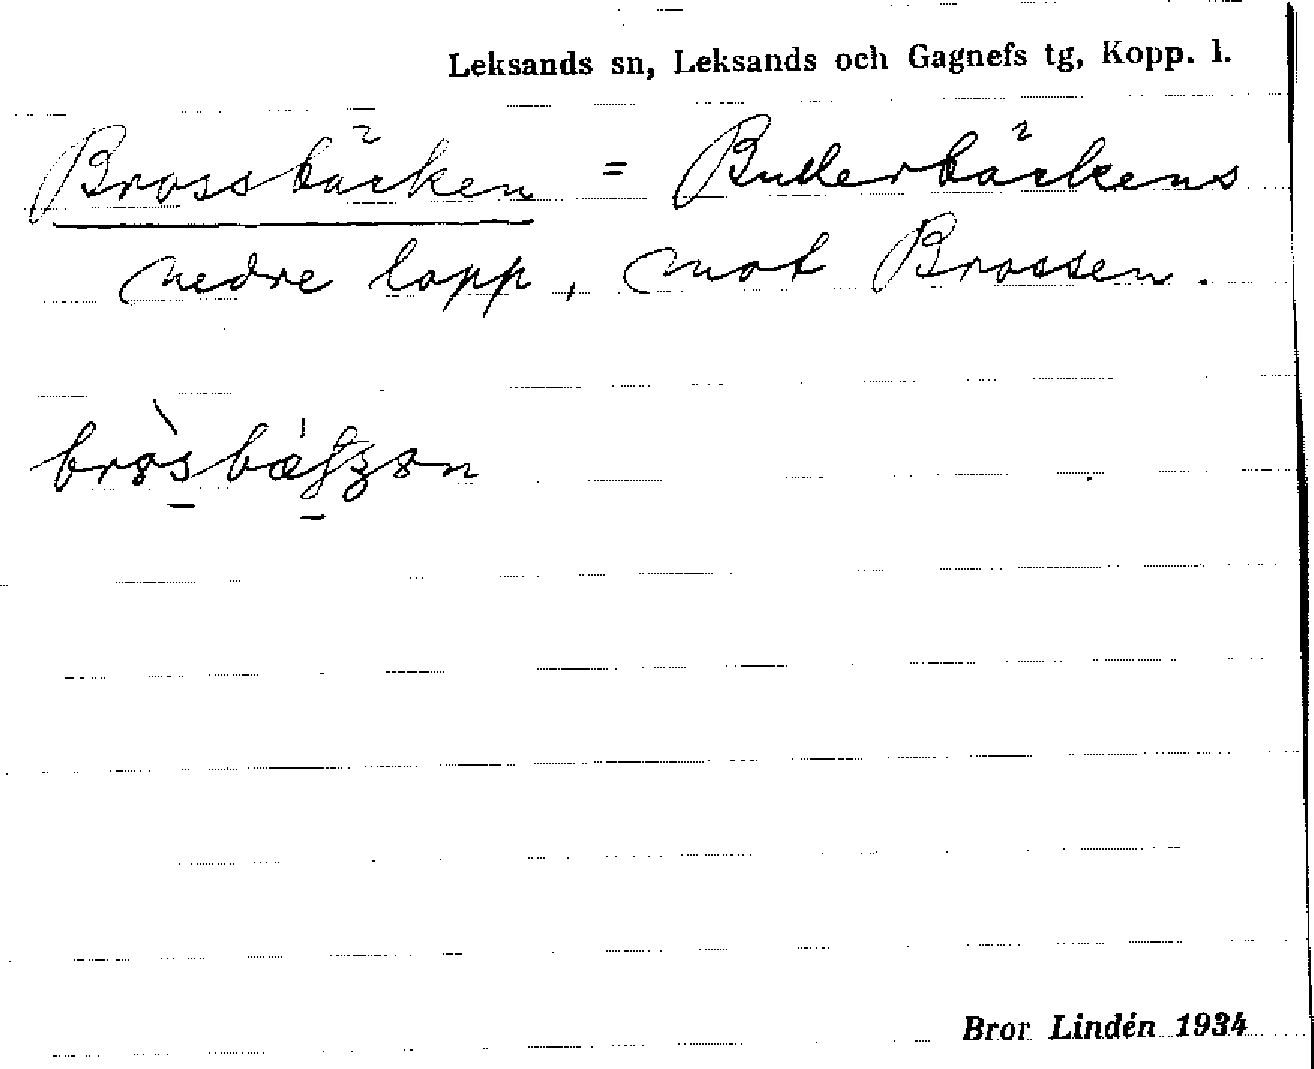 Leksands sn, Leksands och Gagnefs tg, Kopp. l.
Brossbäcken = Butlerbäckens
nedre lopp, mot Brossen.
Bror Lindén 1934